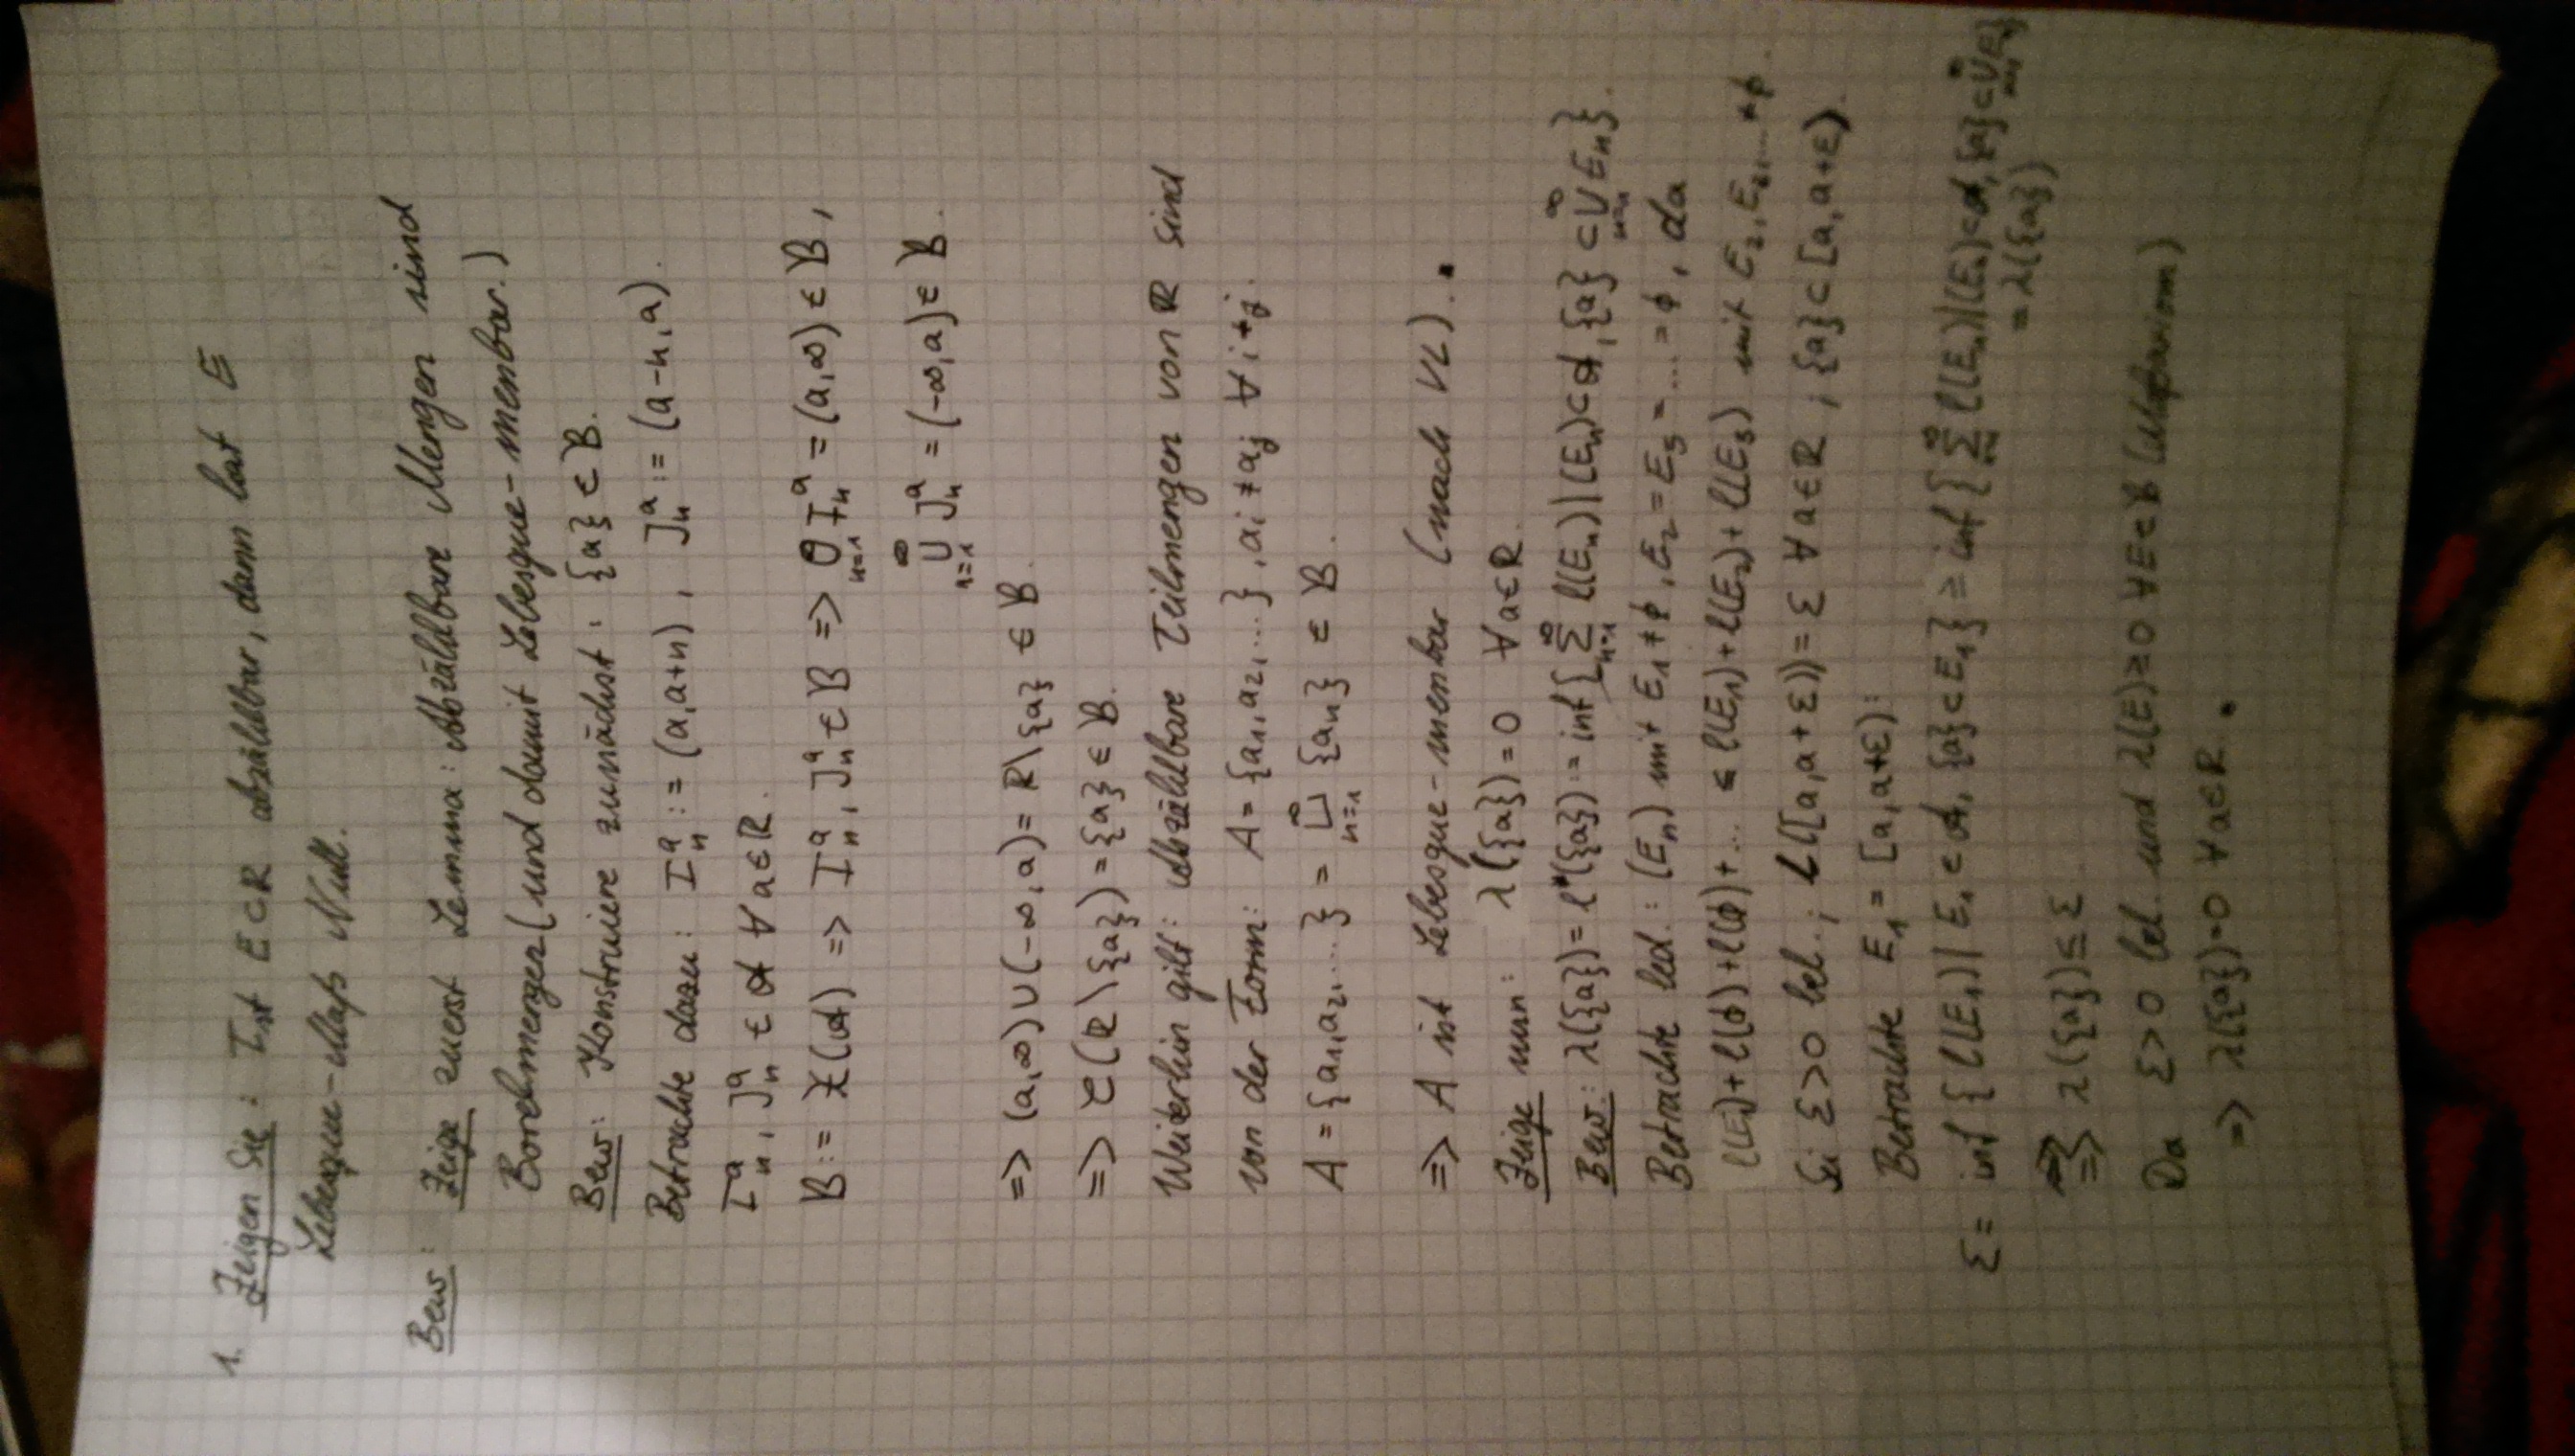 1. Zeigen Sie: Ist E⊂ℝ abzählbar, dann hat E
Lebesgue-Maß Null.
Bew: Zeige zuerst Lemma: Abzählbare Mengen sind
Borelmengen (und damit Lebesgue-messbar.)
Bew: Konstruiere zunächst: {a} ∈ B.
Betrachte dazu: Iₙᵃ := (a, a+n), Jₙᵃ := (a-n, a).
Iₙᵃ, Jₙᵃ ∈ A ∀ a∈ℝ.
B := Σ(A) => Iₙᵃ, Jₙᵃ ∈ B => ⋃_{n=1}^∞ Iₙᵃ = (a,∞) ∈ B,
⋃_{n=1}^∞ Jₙᵃ = (-∞, a) ∈ B.
=> (a,∞) ∪ (-∞, a) = ℝ\{a} ∈ B.
=> C(ℝ\{a}) = {a} ∈ B.
Weiterhin gilt: Abzählbare Teilmengen von ℝ sind
von der Form: A = {a₁, a₂, ...}, aᵢ ≠ aⱼ ∀ i ≠ j.
A = {a₁, a₂, ...} = ⨆_{n=1}^∞ {aₙ} ∈ B.
=> A ist Lebesgue-messbar (nach VL). ▪
Zeige nun: λ({a}) = 0 ∀ a∈ℝ
Bew: λ({a}) = l*({a}) := inf {∑_{n=1}^∞ l(Eₙ) | (Eₙ) ⊂ A, {a} ⊂ ⋃_{n=1}^∞ Eₙ}.
Betrachte led.: (Eₙ) mit E₁ ≠ ∅, E₂ = E₃ = .... = ∅, da
l(E₁) + l(∅) + l(∅) + ... ≤ l(E₁) + l(E₂) + l(E₃) mit E₂, E₃, ... ≠ ∅.
Sei ε>0 bel.; l([a, a+ε)) = ε ∀ a∈ℝ, {a} ⊂ [a, a+ε).
Betrachte E₁ = [a, a+ε):
ε = inf {l(E₁) | E₁ ∈ A, {a} ⊂ E₁} ≥ inf {∑_{n=1}^∞ l(Eₙ) | (Eₙ) ⊂ A, {a} ⊂ ⋃_{n=1}^∞ Eₙ}
= λ({a})
=> λ({a}) ≤ ε
Da ε>0 bel. und λ(E) ≥ 0 ∀ E∈B (Maßaxiom)
=> λ({a}) = 0 ∀ a∈ℝ. ▪